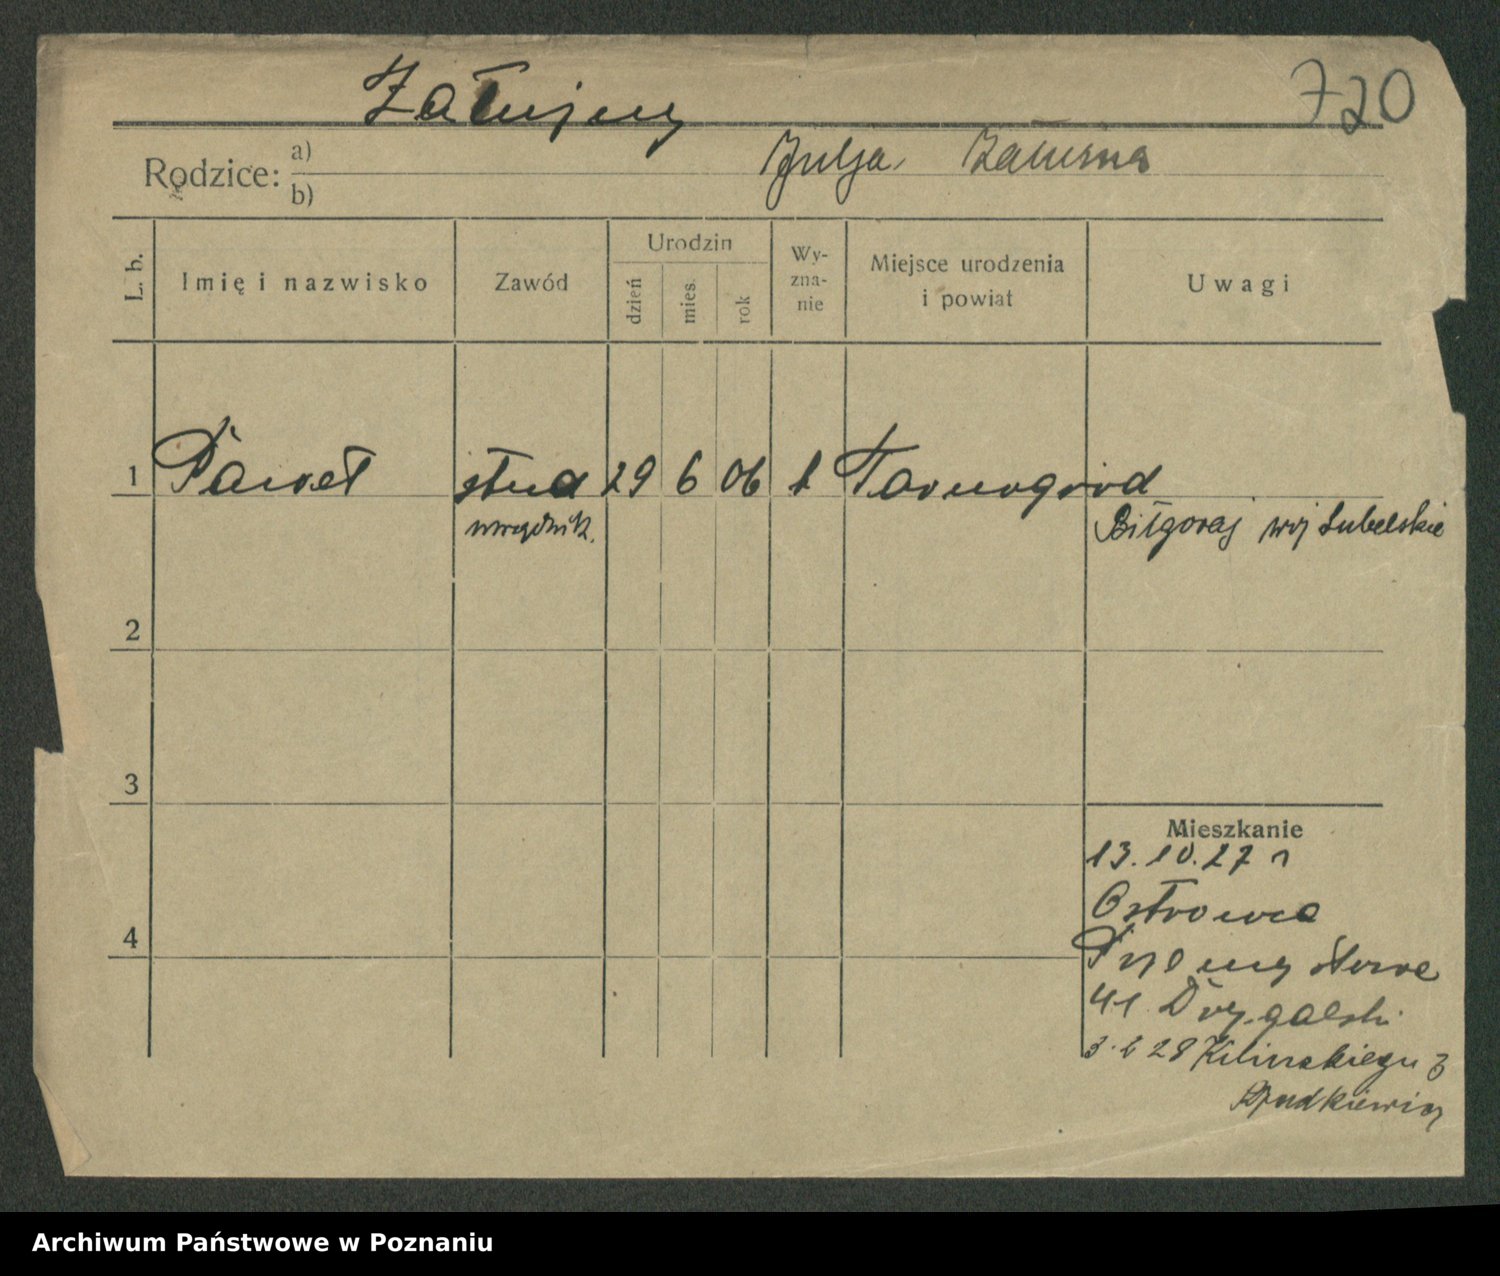 Załujny
720
Rodzice: a) Julja Załusna
b)
L. b. Imię i nazwisko Zawód Urodzin dzień mies. rok Wy-zna-nie Miejsce urodzenia i powiat Uwagi
1 Paweł stud 29 6 06 Tarnogród
urzędnik. Biłgoraj woj Lubelskie
2
3
Mieszkanie
13.10.27 r
4 Ostrowca
Przemysłowe
41 Drygalski
28 Kilinskiego 3
Archiwum Państwowe w Poznaniu